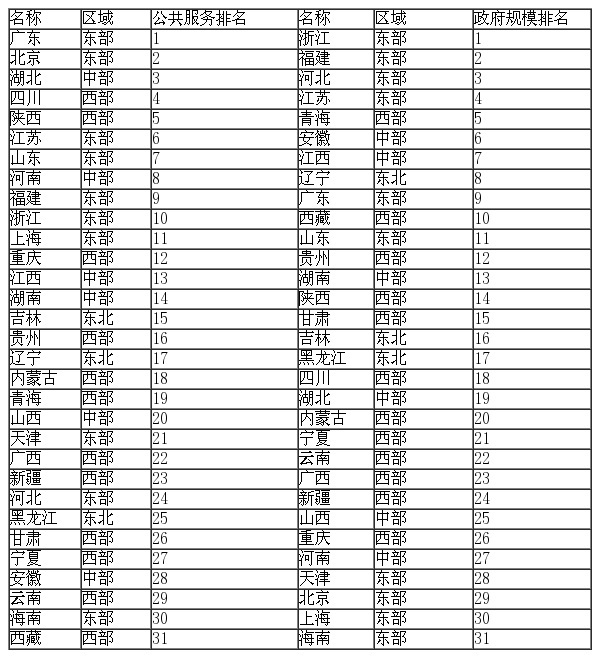 名称 区域 公共服务排名 名称 区域 政府规模排名
广东 东部 1 浙江 东部 1
北京 东部 2 福建 东部 2
湖北 中部 3 河北 东部 3
四川 西部 4 江苏 东部 4
陕西 西部 5 青海 西部 5
江苏 东部 6 安徽 中部 6
山东 东部 7 江西 中部 7
河南 中部 8 辽宁 东北 8
福建 东部 9 广东 东部 9
浙江 东部 10 西藏 西部 10
上海 东部 11 山东 东部 11
重庆 西部 12 贵州 西部 12
江西 中部 13 湖南 中部 13
湖南 中部 14 陕西 西部 14
吉林 东北 15 甘肃 西部 15
贵州 西部 16 吉林 东北 16
辽宁 东北 17 黑龙江 东北 17
内蒙古 西部 18 四川 西部 18
青海 西部 19 湖北 中部 19
山西 中部 20 内蒙古 西部 20
天津 东部 21 宁夏 西部 21
广西 西部 22 云南 西部 22
新疆 西部 23 广西 西部 23
河北 东部 24 新疆 西部 24
黑龙江 东北 25 山西 中部 25
甘肃 西部 26 重庆 西部 26
宁夏 西部 27 河南 中部 27
安徽 中部 28 天津 东部 28
云南 西部 29 北京 东部 29
海南 东部 30 上海 东部 30
西藏 西部 31 海南 东部 31